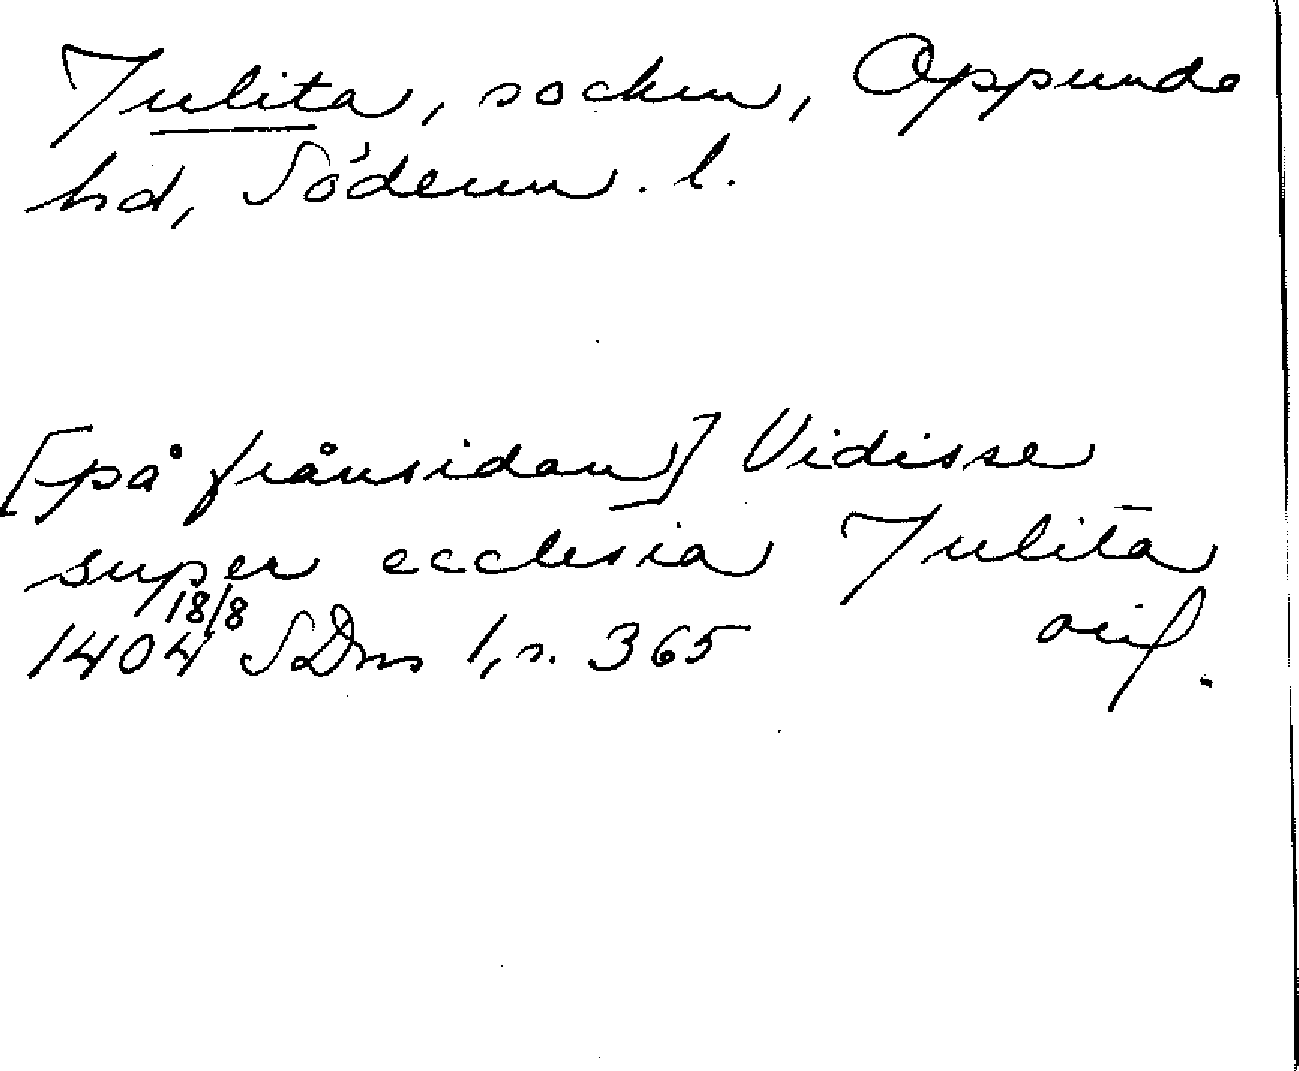 Julita, socken, Oppunda
hd, Söderm. l.
[på frånsidan] Vidisse
super ecclesia Julitā
1404 18/8 SDns 1, s. 365 orig.